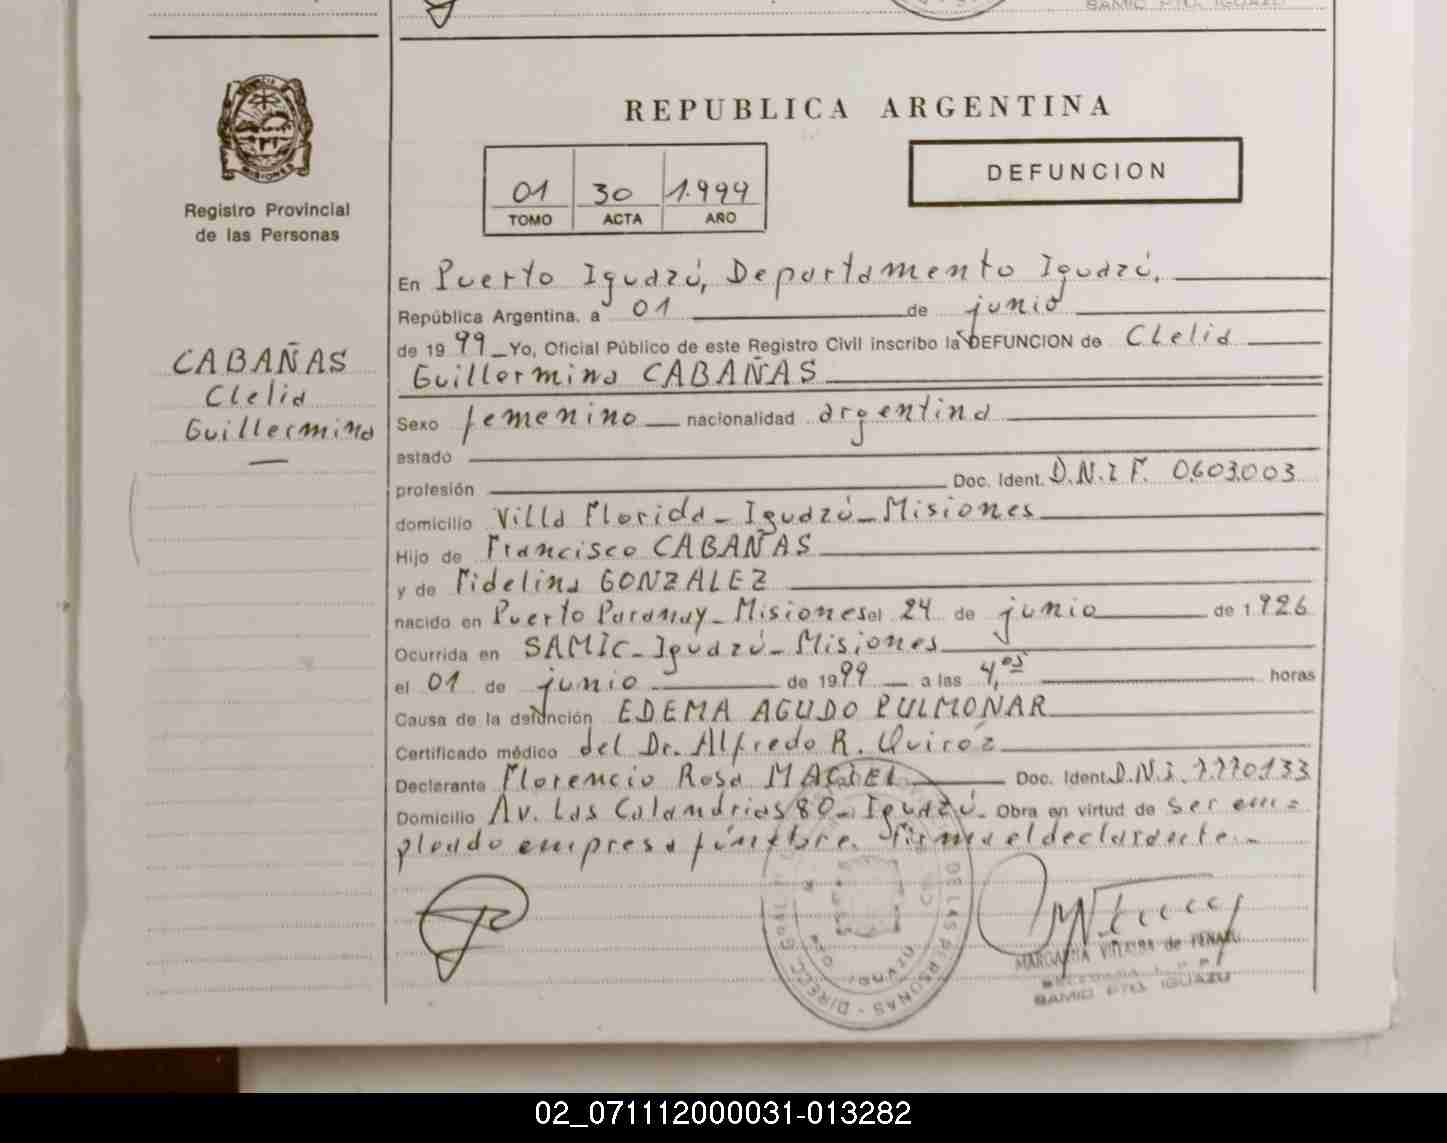 SAMIC PTO. IGUAZU
REPUBLICA ARGENTINA
DEFUNCION
01 30 1.999
TOMO ACTA AÑO
MISIONES
Registro Provincial
de las Personas
CABAÑAS
Clelia
Guillermina
En Puerto Iguazú, Departamento Iguazú,
República Argentina, a 01 de junio
de 1999 Yo, Oficial Público de este Registro Civil inscribo la DEFUNCION de Clelia
Guillermina CABAÑAS
Sexo femenino nacionalidad argentina
estado
profesión Doc. Ident. D.N.I F. 0.603.003
domicilio Villa Florida - Iguazú - Misiones
Hijo de Francisco CABAÑAS
y de Fidelina GONZALEZ
nacido en Puerto Paranay - Misiones el 24 de junio de 1.926
Ocurrida en SAMIC - Iguazú - Misiones
el 01 de junio de 1999 a las 4,05 horas
Causa de la defunción EDEMA AGUDO PULMONAR
Certificado médico del Dr. Alfredo R. Quiróz
Declarante Florencio Rosa MACIEL Doc. Ident. D.N.I. 7.770.133
Domicilio Av. Las Calandrias 80 - Iguazú. Obra en virtud de ser em=
pleado empresa fúnebre. Firma el declarante.-
DE LAS PERSONAS - DIRECC. GRAL.
MARGARITA de
SAMIC PTO. IGUAZU
02_071112000031-013282